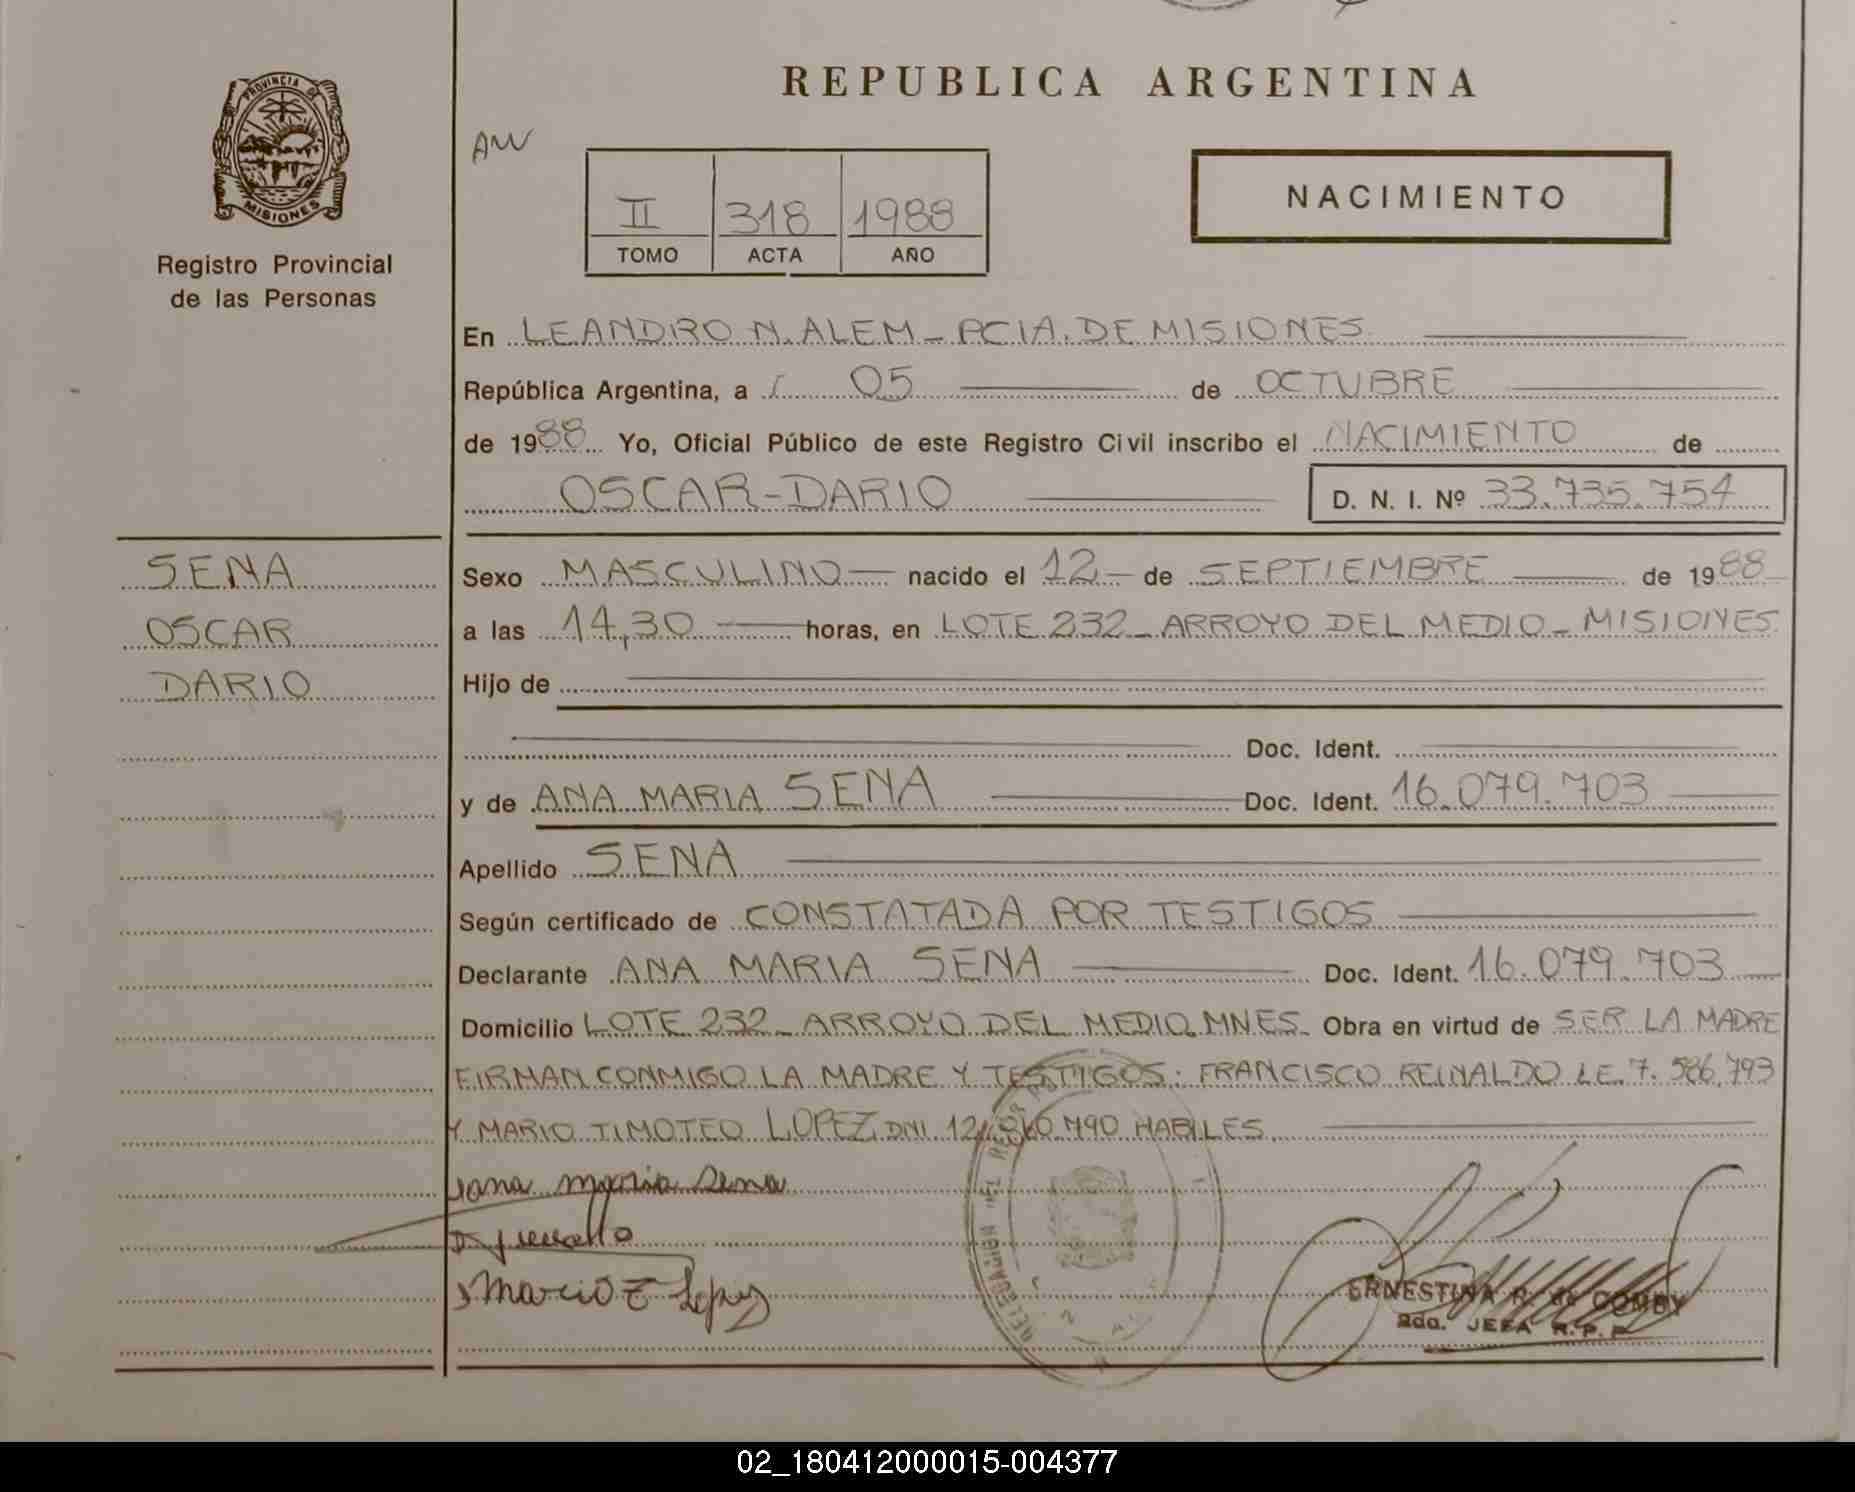 REPUBLICA ARGENTINA
PROVINCIA DE
MISIONES
Registro Provincial
de las Personas
AW
II 318 1988
TOMO ACTA AÑO
NACIMIENTO
En LEANDRO N. ALEM - PCIA. DE MISIONES
República Argentina, a 05 de OCTUBRE
de 1988 Yo, Oficial Público de este Registro Civil inscribo el NACIMIENTO de
OSCAR-DARIO D. N. I. Nº 33.735.754
SENA
OSCAR
DARIO
Sexo MASCULINO nacido el 12 de SEPTIEMBRE de 1988
a las 14,30 horas, en LOTE 232 - ARROYO DEL MEDIO - MISIONES
Hijo de
Doc. Ident.
y de ANA MARIA SENA Doc. Ident. 16.079.703
Apellido SENA
Según certificado de CONSTATADA POR TESTIGOS
Declarante ANA MARIA SENA Doc. Ident. 16.079.703
Domicilio LOTE 232 - ARROYO DEL MEDIO MNES. Obra en virtud de SER LA MADRE
FIRMAN CONMIGO LA MADRE Y TESTIGOS: FRANCISCO REINALDO L.E. 7.586.793
Y MARIO TIMOTEO LOPEZ, DNI HABILES
ana maria Sena
Mario T Lopez
ERNESTINA R. de COMBY
2da. JEFA R.P.P.
02_180412000015-004377